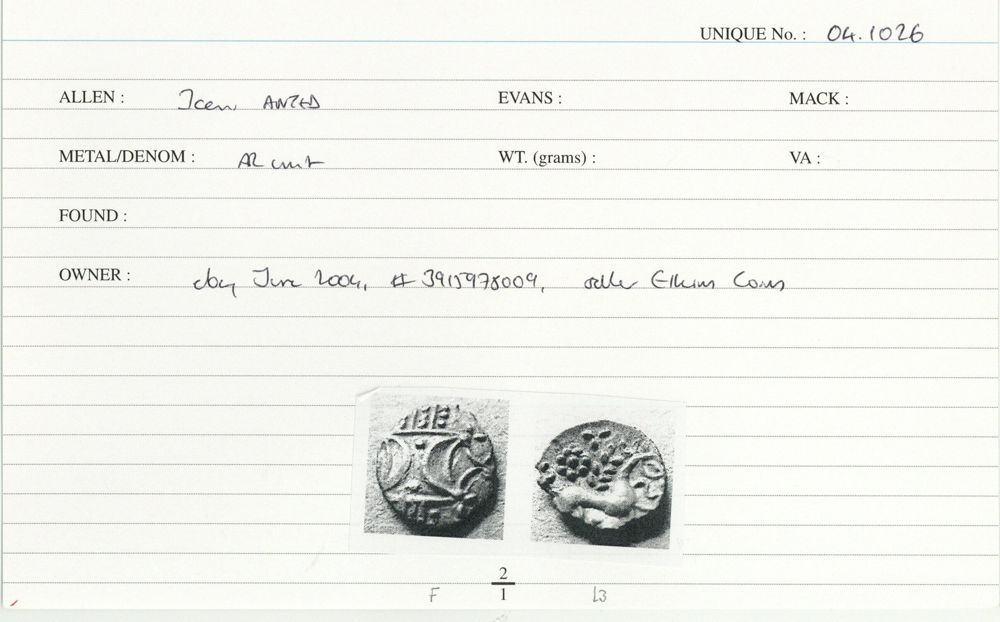 UNIQUE No. : 04.1026
ALLEN : Iceni ANTED EVANS : MACK :
METAL/DENOM : AR unit WT. (grams) : VA :
FOUND :
OWNER : ebay June 2004, # 3915978009, seller Elkins Coins
2
F 1 L3